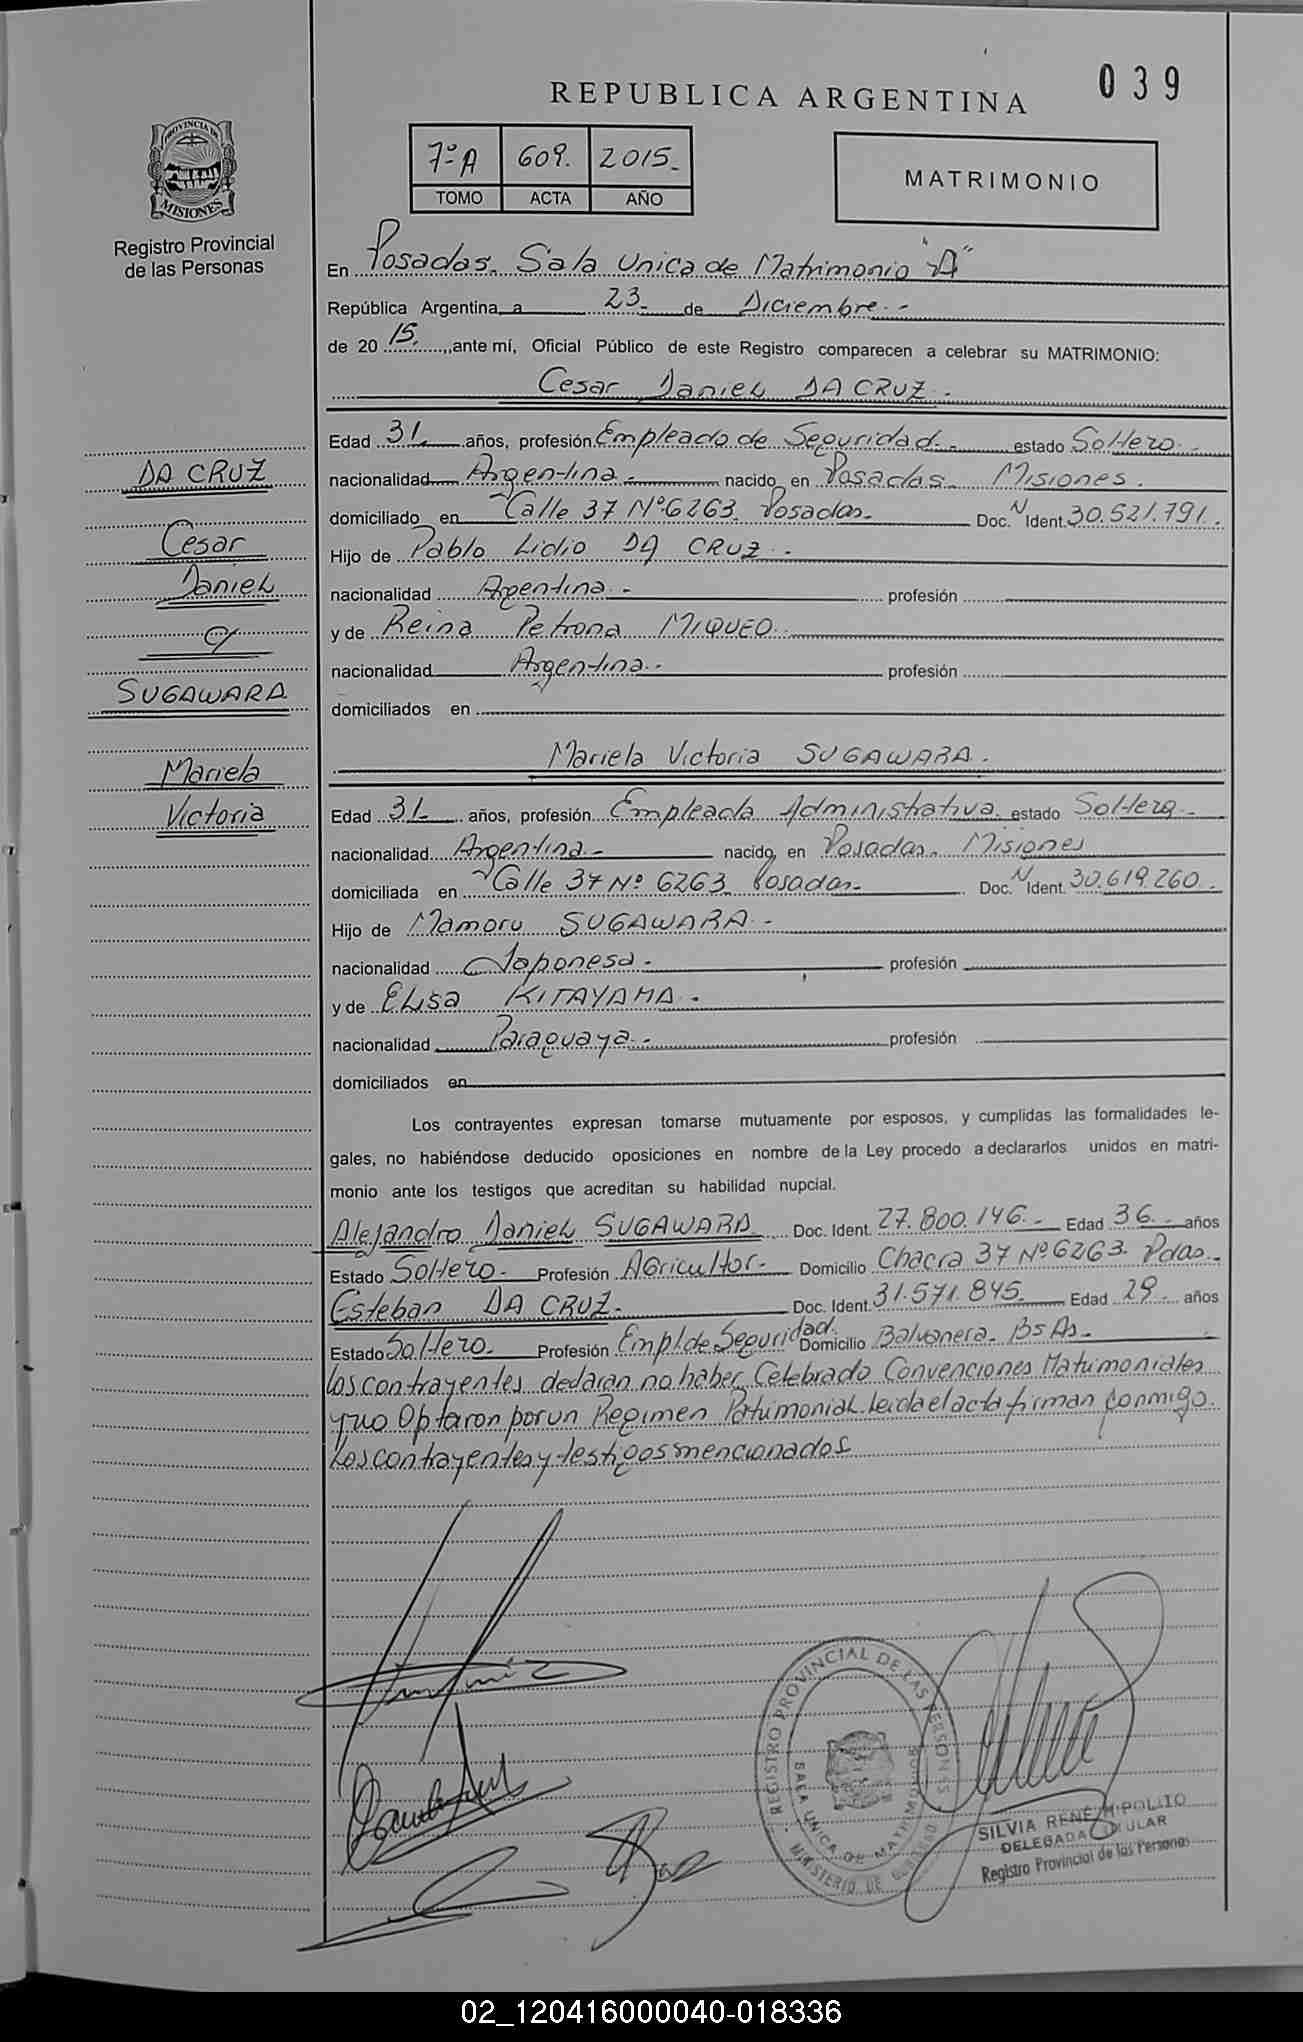 039
REPUBLICA ARGENTINA
PROVINCIA DE
MISIONES
Registro Provincial
de las Personas
7º A 609. 2015.
TOMO ACTA AÑO
MATRIMONIO
En Posadas. Sala Unica de Matrimonio "A"
República Argentina, a 23 de Diciembre.-
de 2015, ante mí, Oficial Público de este Registro comparecen a celebrar su MATRIMONIO:
Cesar Daniel DA CRUZ.
Edad 31 años, profesión Empleado de Seguridad.- estado Soltero.
nacionalidad Argentina.- nacido en Posadas. Misiones.
domiciliado en Calle 37 Nº 6263. Posadas. Doc. N Ident. 30.521.791.
Hijo de Pablo Lidio DA CRUZ.-
nacionalidad Argentina.- profesión
y de Reina Petrona MIQUEO.
nacionalidad Argentina.- profesión
domiciliados en
DA CRUZ
Cesar
Daniel
y
SUGAWARA
Mariela
Victoria
Mariela Victoria SUGAWARA.
Edad 31 años, profesión Empleada Administrativa. estado Soltera.-
nacionalidad Argentina.- nacido en Posadas. Misiones
domiciliada en Calle 37 Nº 6263. Posadas.- Doc. N Ident. 30.619.260.
Hijo de Mamoru SUGAWARA.-
nacionalidad Japonesa.- profesión
y de Elisa KITAYAMA.-
nacionalidad Paraguaya.- profesión
domiciliados en
Los contrayentes expresan tomarse mutuamente por esposos, y cumplidas las formalidades le-
gales, no habiéndose deducido oposiciones en nombre de la Ley procedo a declararlos unidos en matri-
monio ante los testigos que acreditan su habilidad nupcial.
Alejandro Daniel SUGAWARA Doc. Ident. 27.800.146.- Edad 36.- años
Estado Soltero.- Profesión Agricultor.- Domicilio Chacra 37 Nº 6263. Pdas.-
Esteban DA CRUZ. Doc. Ident. 31.571.845. Edad 29.- años
Estado Soltero. Profesión Empl. de Seguridad. Domicilio Balvanera. Bs As.-
Los contrayentes declaran no haber Celebrado Convenciones Matrimoniales
y no Optaron por un Regimen Patrimonial. Leida el acta firman conmigo.
Los contrayentes y testigos mencionados
REGISTRO PROVINCIAL DE LAS PERSONAS
SALA UNICA DE MATRIMONIOS
MINISTERIO DE GOBIERNO
SILVIA RENÉ HIPOLITO
DELEGADA TITULAR
Registro Provincial de las Personas
02_120416000040-018336